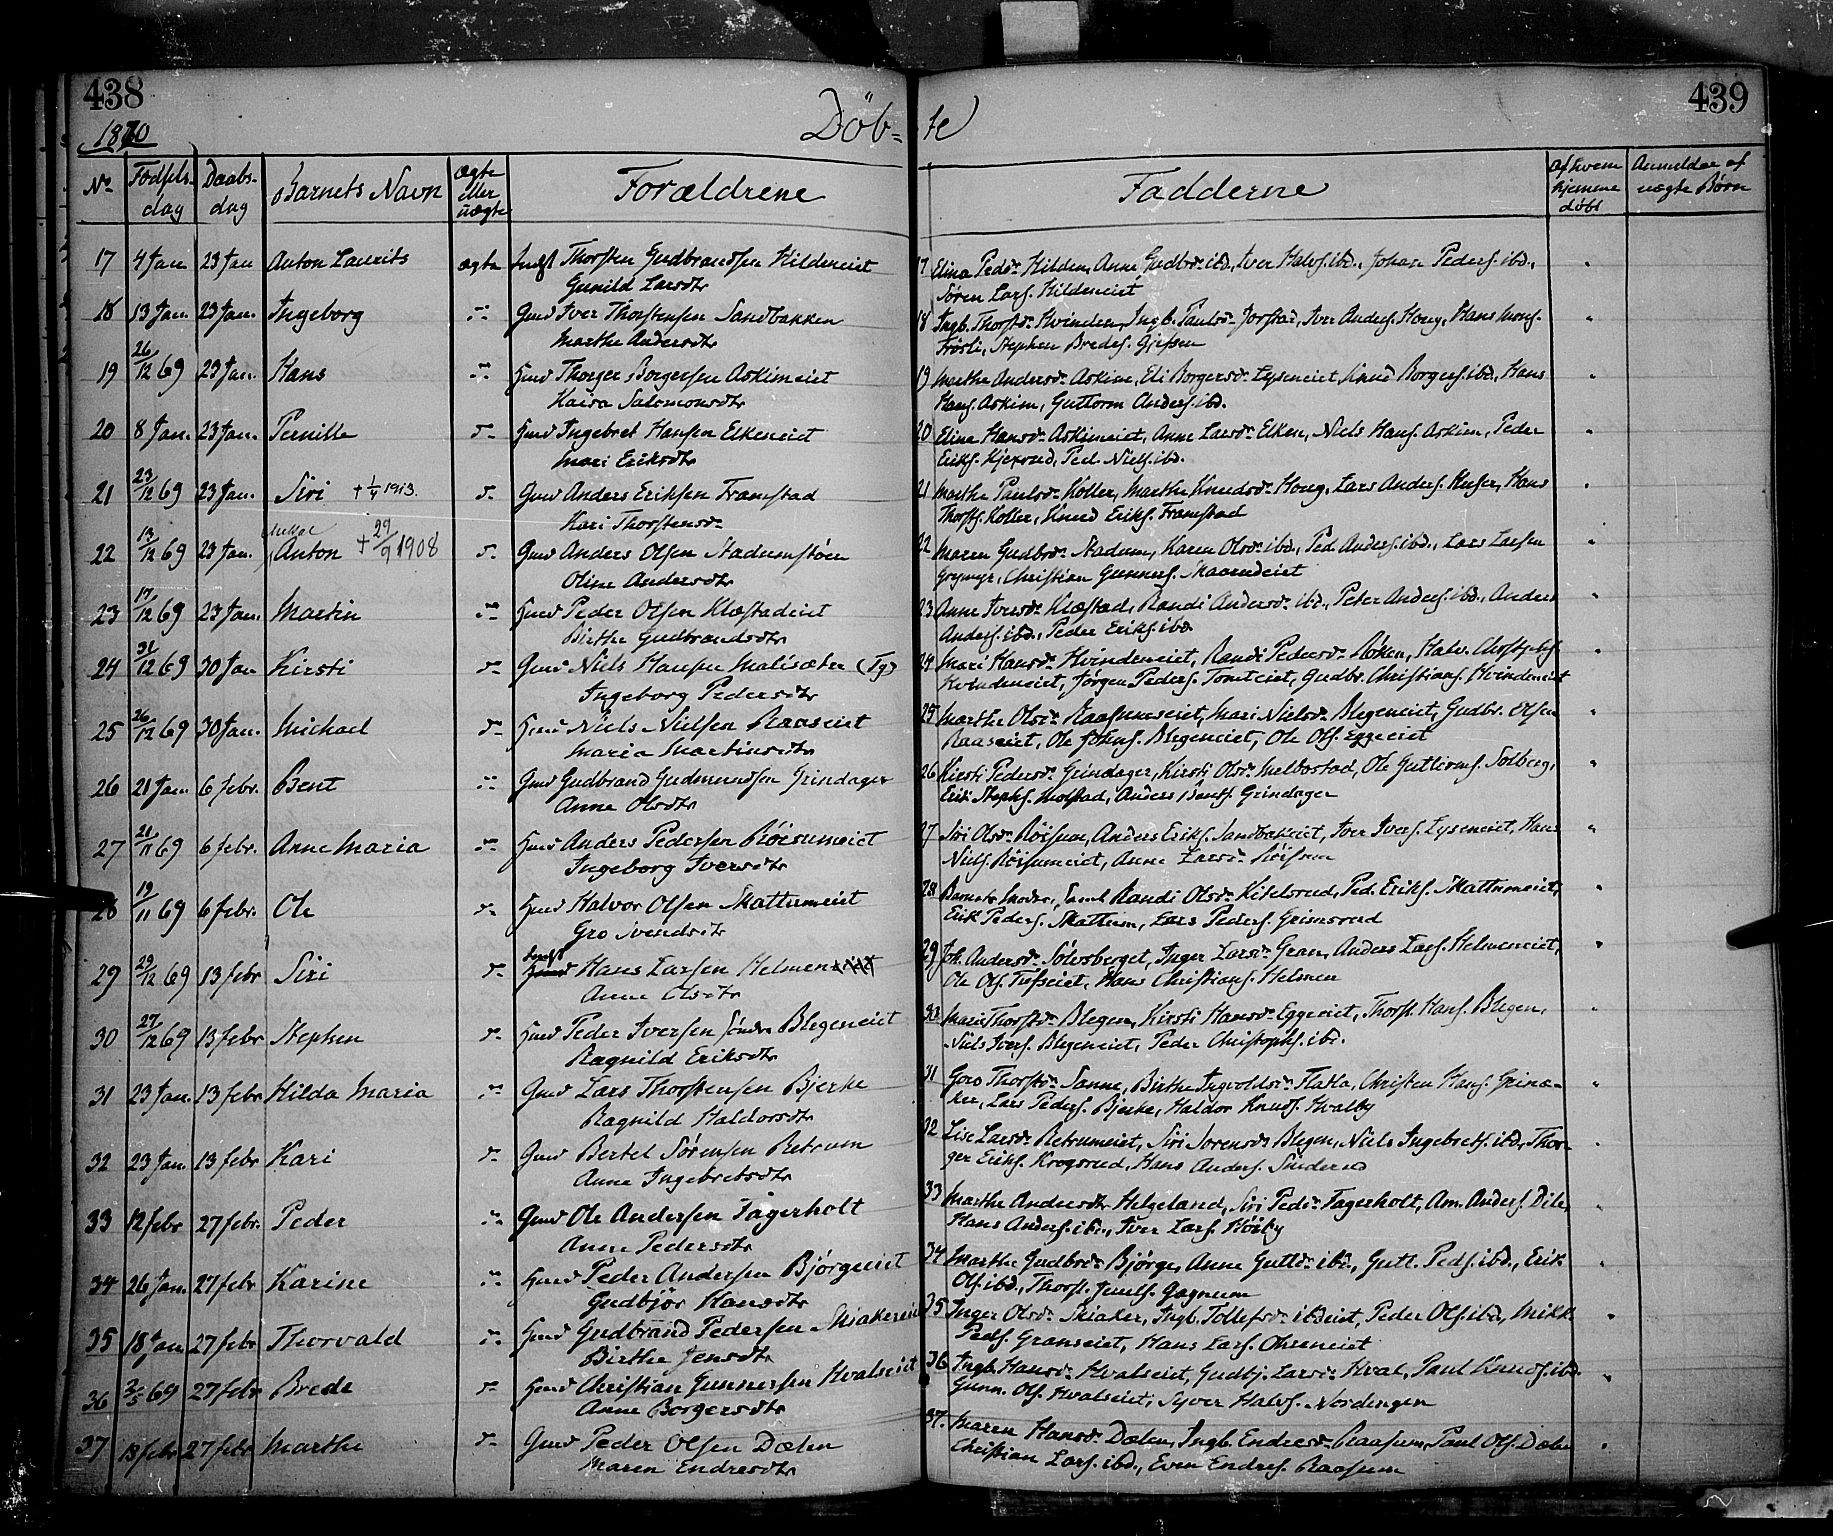 438
439
1870
Döb= te
No Fødsels- dag Daabs- dag Barnets Navn Ægte eller uægte Forældrene Fadderne Af hvem hjemme døbt Anmeldar af uægte Børn
17 4 Jan 23 Jan Anton Laurits ægte Indst Thorsten Gudbrandsen Hildeneiet
Gunild Larsdtr
17 Elina Pedsd. Hilden, Anne Gudbrsd. ibd., Iver Halvs. ibd., Johan Peders. ibd.,
Søren Lars. Hildeneiet
18 13 Jan. 23 Jan. Ingeborg Gmd Iver Thorstensen Sandbakken
Marthe Andersdtr
18 Ingb. Thorstsd. Hvinden, Ingb. Paulsd. Jorstad, Iver Anders. Houg, Hans Mons.
Frøsli, Stephen Bredes. Gjefsen
19 26/12 69 23 Jan. Hans Hmd Thorger Borgersen Askimeiet
Kaisa Salomonsdtr
19 Marthe Andersd. Askim, Eli Borgersd. Lyseneiet, Knud Borgers. ibd., Hans
Hans. Askim, Guttorm Anders. ibd.
20 8 Jan. 23 Jan. Pernille Hmd Ingebret Hansen Elkeneiet
Mari Eriksdtr
20 Elina Hansd. Askimeiet, Anne Larsd. Elken, Niels Hans. Askim, Peder
Eriks. Kjexrud, Ped. Niels. ibd.
21 23/12 69 23 Jan. Siri + 1/4 1913. Gmd Anders Eriksen Framstad
Kari Thorstensd.
21 Marthe Paulsd. Koller, Marthe Knudsd. Houg, Lars Anders. Huser, Hans
Thorsts. Koller, Knud Eriks. Framstad
22 13/12 69 23 Jan. Anton + 29/9 1908 Gmd Anders Olsen Stadumstøen
Oline Andersdtr
22 Maren Gudbrsd. Stadum, Karen Olsd. ibd., Ped. Anders. ibd., Lars Larsen
Grymyr, Christian Gunners. Skaarudeiet
23 17/12 69 23 Jan. Martin Hmd Peder Olsen Klæstadeiet
Birthe Gudbrandsdtr
23 Anne Iversd. Klæstad, Randi Andersd. ibd., Peter Anders. ibd., Anders
Anders. ibd., Peder Eriks. ibd.
24 31/12 69 30 Jan Kirsti Gmd Niels Hansen Malisæter (Ty)
Ingeborg Pedersdtr
24 Mari Hansd. Hvindeneiet, Randi Pedersd. Røken, Halv. Christophs.
Hvindeneiet, Jørgen Peders. Tomteiet, Gudbr. Christians. Hvindeneiet
25 26/12 69 30 Jan. Michael Hmd Niels Nielsen Raaseiet
Maria Martinsdtr
25 Marthe Olsd. Raasumseiet, Mari Nielsd. Blegeneiet, Gudbr. Olsen
Raaseiet, Ole Johns. Blegeneiet, Ole Ols. Eggeeiet
26 21 Jan. 6 febr. Bent Gmd Gudbrand Gudmundsen Grindager
Anne Olsdtr
26 Kirsti Pedersd. Grindager, Kirsti Olsd. Melbostad, Ole Guttorms. Solberg,
Erik Stephs. Molstad, Anders Bents. Grindager
27 21/11 69 6 febr. Anne Maria Hmd Anders Pedersen Røisumeiet
Ingeborg Iversdtr
27 Siri Olsd. Røisum, Anders Eriks. Sandbakeiet, Iver Ivers. Lyseneiet, Hans
Niels. Røisumeiet, Anne Larsd. Røisum
28 19/11 69 6 febr. Ole Hmd Halvor Olsen Skattumeiet
Gro Svendsdtr
28 Barnets Moder, samt Randi Olsd. Kittelsrud, Ped. Eriks. Skattumeiet,
Erik Peders. Skattum, Lars Peders. Grimsrud
29 29/12 69 13 febr Siri Indst Hans Larsen Helmen
Anne Olsdtr
29 Joh. Andersd. Sølvsberget, Inger Larsd. Gran, Anders Lars. Helmeneiet,
Ole Ols. Tufseiet, Hans Christians. Helmen
30 27/12 69 13 febr Stephen Hmd Peder Iversen søndre Blegeneiet
Ragnild Eriksdtr
30 Mari Thorstsd. Blegen, Kirsti Hansd. Eggeeiet, Thorst. Hans. Blegen,
Niels Ivers. Blegeneiet, Peder Christophs. ibd.
31 23 Jan. 13 febr Hilda Maria Gmd Lars Thorstensen Bjerke
Ragnild Haldorsdtr
31 Goro Thorstsd. Sanne, Birthe Ingvoldsd. Flatla, Christen Hans. Grina-
ker, Lars Peders. Bjerke, Haldor Knuds. Hvalby
32 23 Jan. 13 febr Kari Gmd Bertel Sørensen Retrum
Anne Ingebretsdtr
32 Lise Larsd. Retrumeiet, Siri Sorensd. Blegen, Niels Ingebrets. ibd., Thor-
ger Eriks. Krogsrud, Hans Anders. Sinderud
33 12 febr 27 febr. Peder Gmd Ole Andersen Fagerholt
Anne Pedersdtr
33 Marthe Andersdtr Helgeland, Siri Pedsd. Fagerholt, Am. Anders. Dilen,
Hans Anders. ibd., Iver Lars. Høiby
34 26 Jan. 27 febr Karine Hmd Peder Andersen Bjørgeeiet
Gudbjør Hansdtr
34 Marthe Gudbrsd. Bjørge, Anne Guttd. ibd., Gutt. Peds. ibd., Erik
Ols. ibd., Thorst. Juuls. Gagnum
35 18 Jan 27 febr Thorvald Hmd Gudbrand Pedersen Skiakereiet
Birthe Jensdtr
35 Inger Olsd. Skiaker, Ingb. Tollefsd. ibdeiet, Peder Ols. ibd., Mikk.
Peds. Granseiet, Hans Lars. Ohreneiet
36 2/5 69 27 febr Brede Hmd Christian Gunnersen Hvalseiet
Anne Borgersdtr
36 Ingb. Hansd. Hvalseiet, Gudbj. Larsd. Hval, Paul Knuds. ibd.
Gunn. Ols. Hvalseiet, Syver Halvs. Nordengen
37 13 febr 27 febr Marthe Gmd Peder Olsen Dælen
Maren Endresdtr
37. Maren Hansd. Dælen, Ingb. Endresd. Raasum, Paul Ols. Dælen
Christian Lars. ibd., Even Endres. Raasum